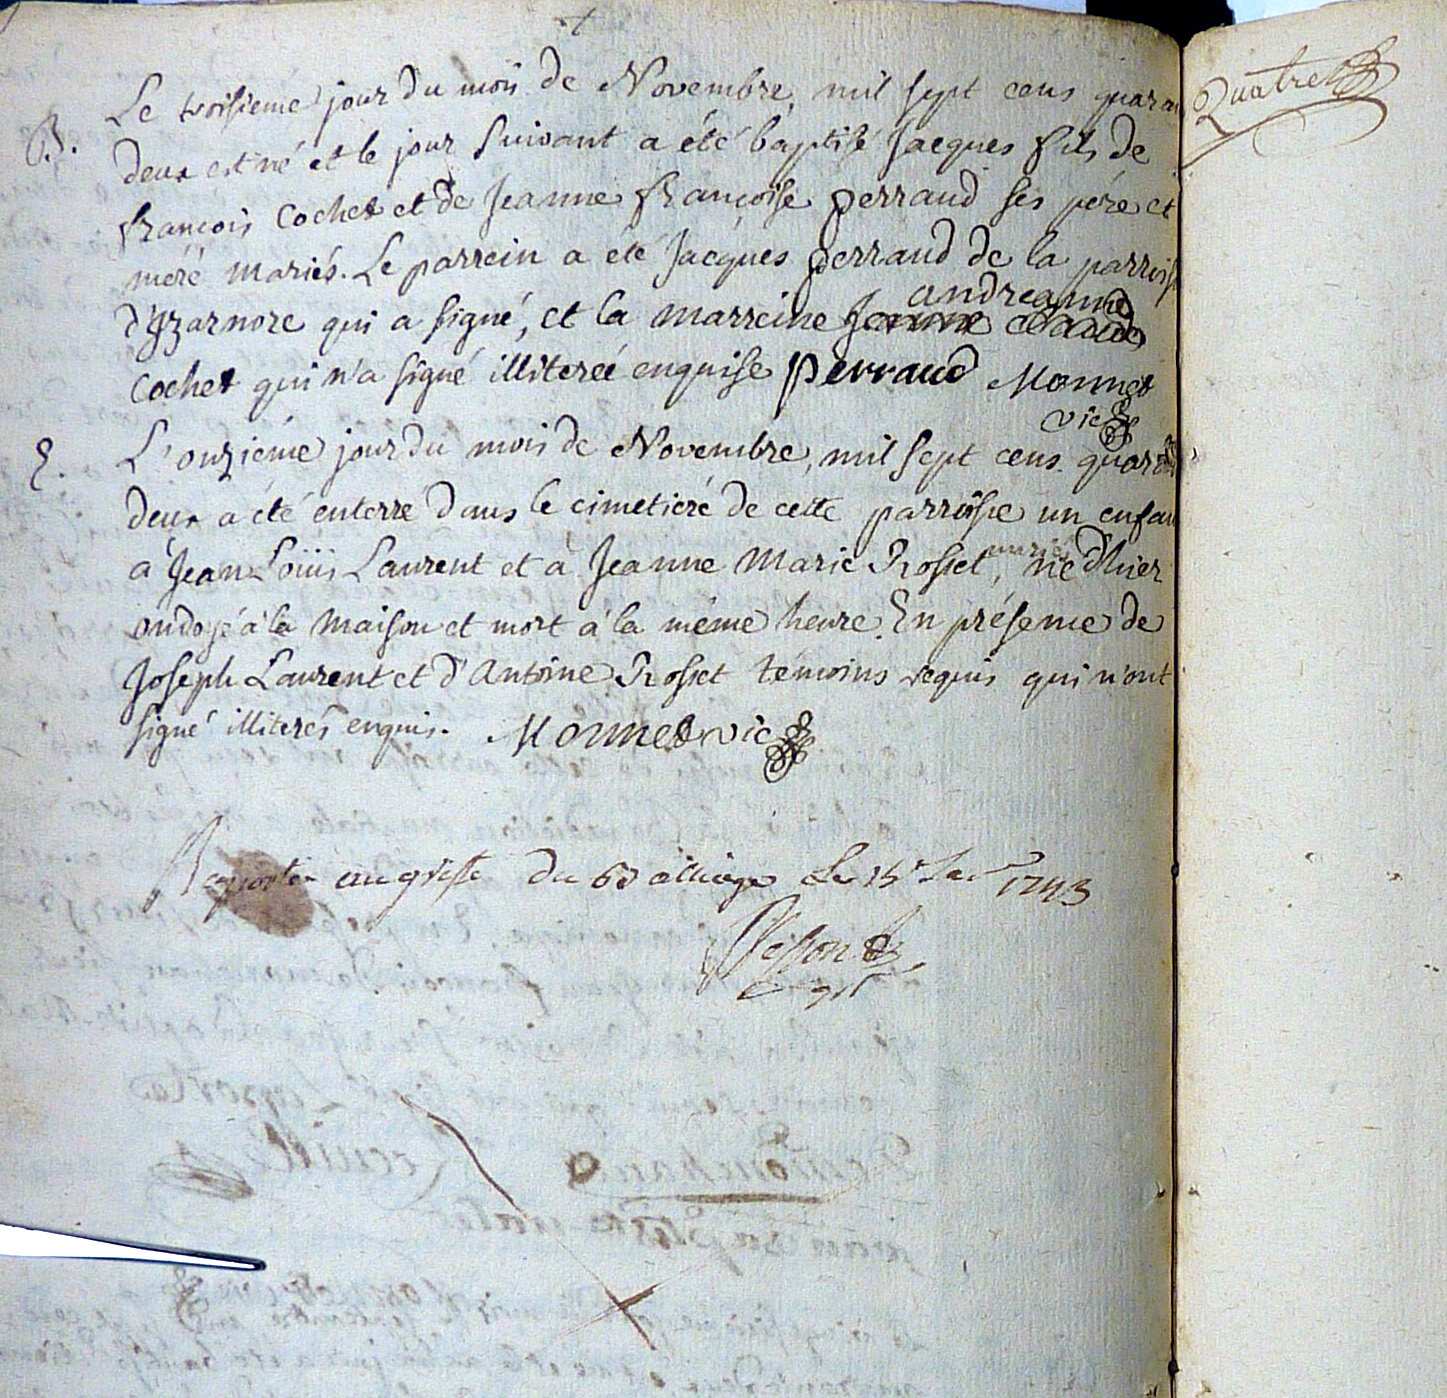 Le troisieme jour du mois de Novembre, mil sept cens quaran
B. deux est né et le jour suivant a été baptisé Jacques fils de
françois Cochet et de Jeanne françoise perraud ses pére et
mére mariés. Le parrein a été Jacques perraud de la parroiss
andreanne
d'yzarnore qui a signé, et la marreine Jeanne claude
Cochet qui n'a signé illiterée enquise Perraud Monnet
vic
E. L'onziéme jour du mois de Novembre, mil sept cens quaran
deux a été enterre dans le cimetiére de cette parroisse un enfan
mariés
à Jean Loüis Laurent et à Jeanne Marie Rosset, né d'hier
ondoyé à la maison et mort à la même heure. En présence de
Joseph Laurent et d'Antoine Rosset témoins requis qui n'ont
signé illiterés enquis. Monnet vic
au greffe du Le 15 1743
Quatre